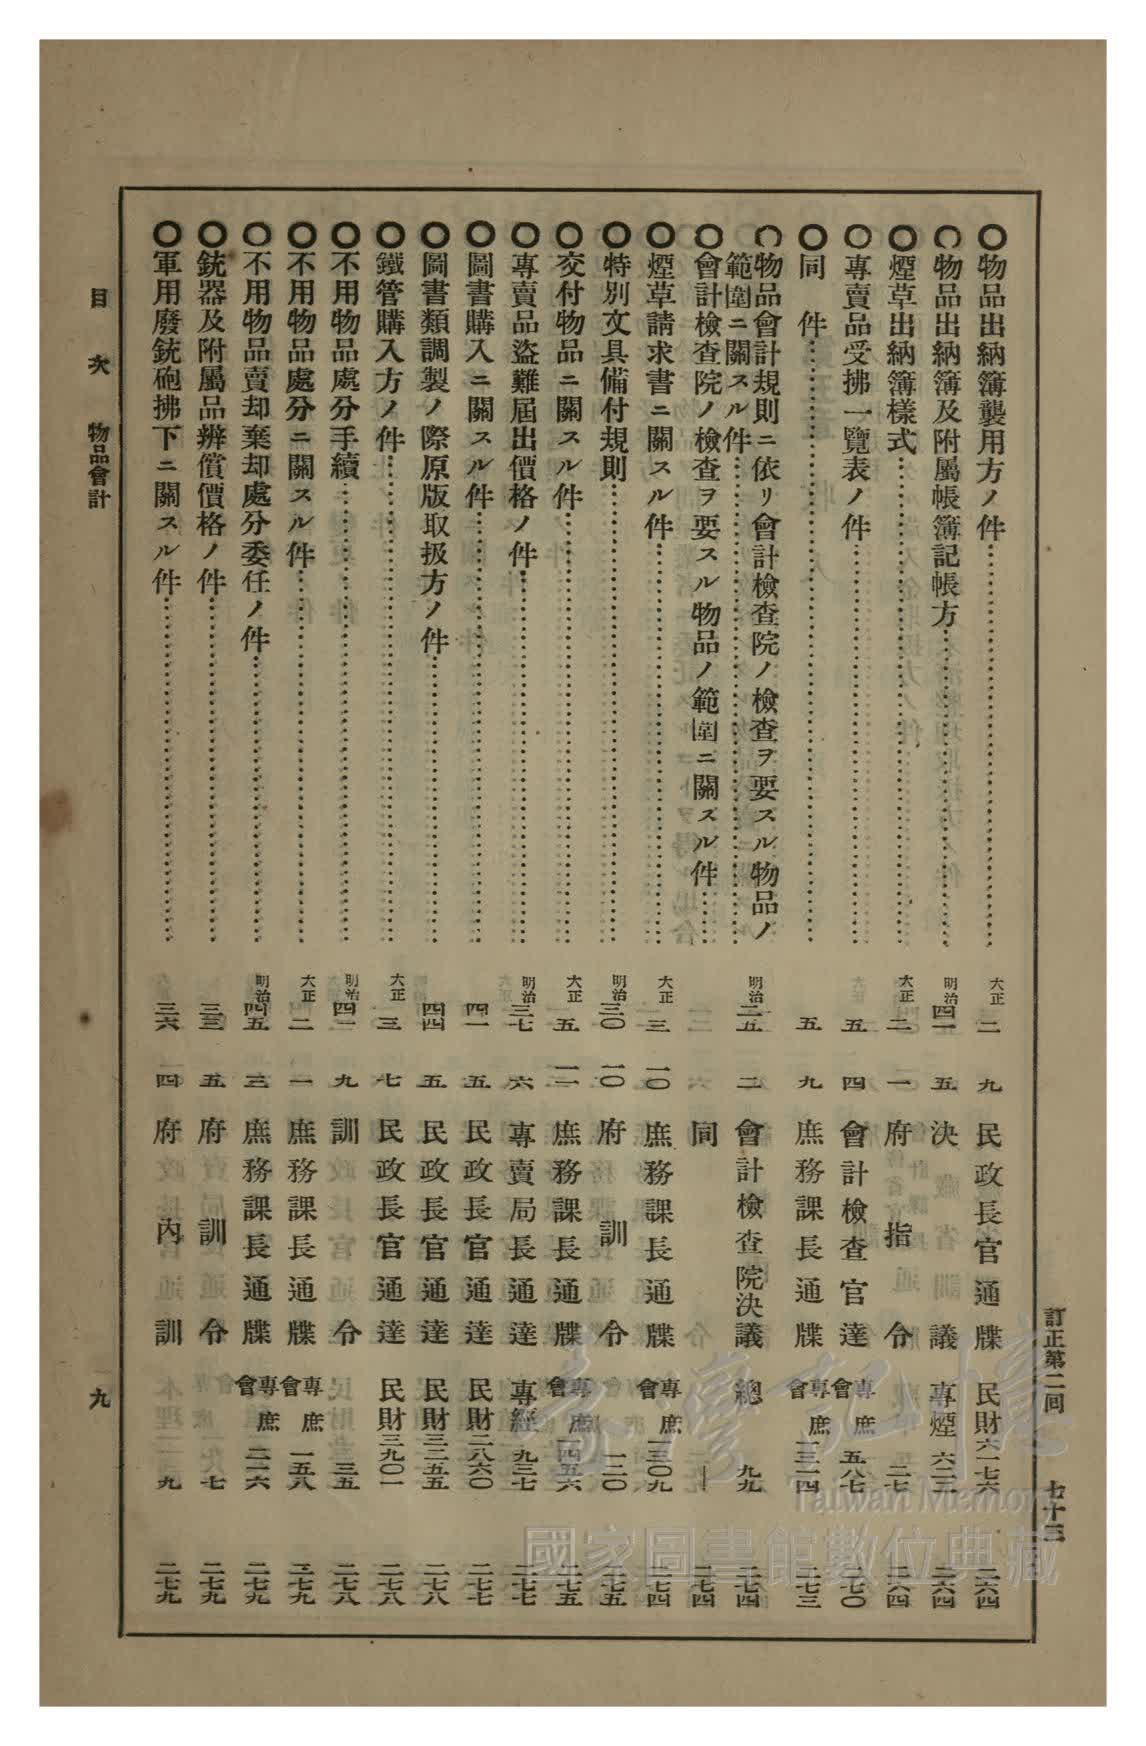 訂正第二囘 七十三
〇物品出納簿襲用方ノ件 大正 二 九 民政長官通牒 民財六一七六 二六四
〇物品出納簿及附屬帳簿記帳方 明治 四一 五 決議 專煙 六二三 二六四
〇煙草出納簿樣式 大正 二 一 府指令 二七 二六四
〇專賣品受拂一覽表ノ件 五 四 會計檢查官達 專庶會 五八七 二七〇
〇同件 五 九 庶務課長通牒 專庶會 三二四 二七三
〇物品會計規則ニ依リ會計檢查院ノ檢查ヲ要スル物品ノ
範圍ニ關スル件 明治 二五 二 會計檢查院決議 總 九九 二七四
〇會計檢查院ノ檢查ヲ要スル物品ノ範圍ニ關スル件 同 | 二七四
〇煙草請求書ニ關スル件 大正 三 一〇 庶務課長通牒 專庶會 三〇九 二七四
〇特別文具備付規則 明治 三〇 一〇 府訓令 一二〇 二七五
〇交付物品ニ關スル件 大正 五 一一 庶務課長通牒 專庶會 四五六 二七五
〇專賣品盜難屆出價格ノ件 明治 三七 六 專賣局長通達 專經 九三七 二七七
〇圖書購入ニ關スル件 四一 五 民政長官通達 民財二八六〇 二七七
〇圖書類調製ノ際原版取扱方ノ件 四四 五 民政長官通達 民財三二五五 二七八
〇鐵管購入方ノ件 大正 三 七 民政長官通達 民財三九〇一 二七八
〇不用物品處分手續 明治 四二 九 訓令 三五 二七八
〇不用物品處分ニ關スル件 大正 二 一 庶務課長通牒 專庶會 一五八 二七九
〇不用物品賣却棄却處分委任ノ件 明治 四五 三 庶務課長通牒 專庶會 二二六 二七九
〇銃器及附屬品辨償價格ノ件 三三 五 府訓令 七 二七九
〇軍用廢銃砲拂下ニ關スル件 三六 四 府內訓 九 二七九
目次 物品會計 九
臺灣記憶
Taiwan Memory
國家圖書館數位典藏